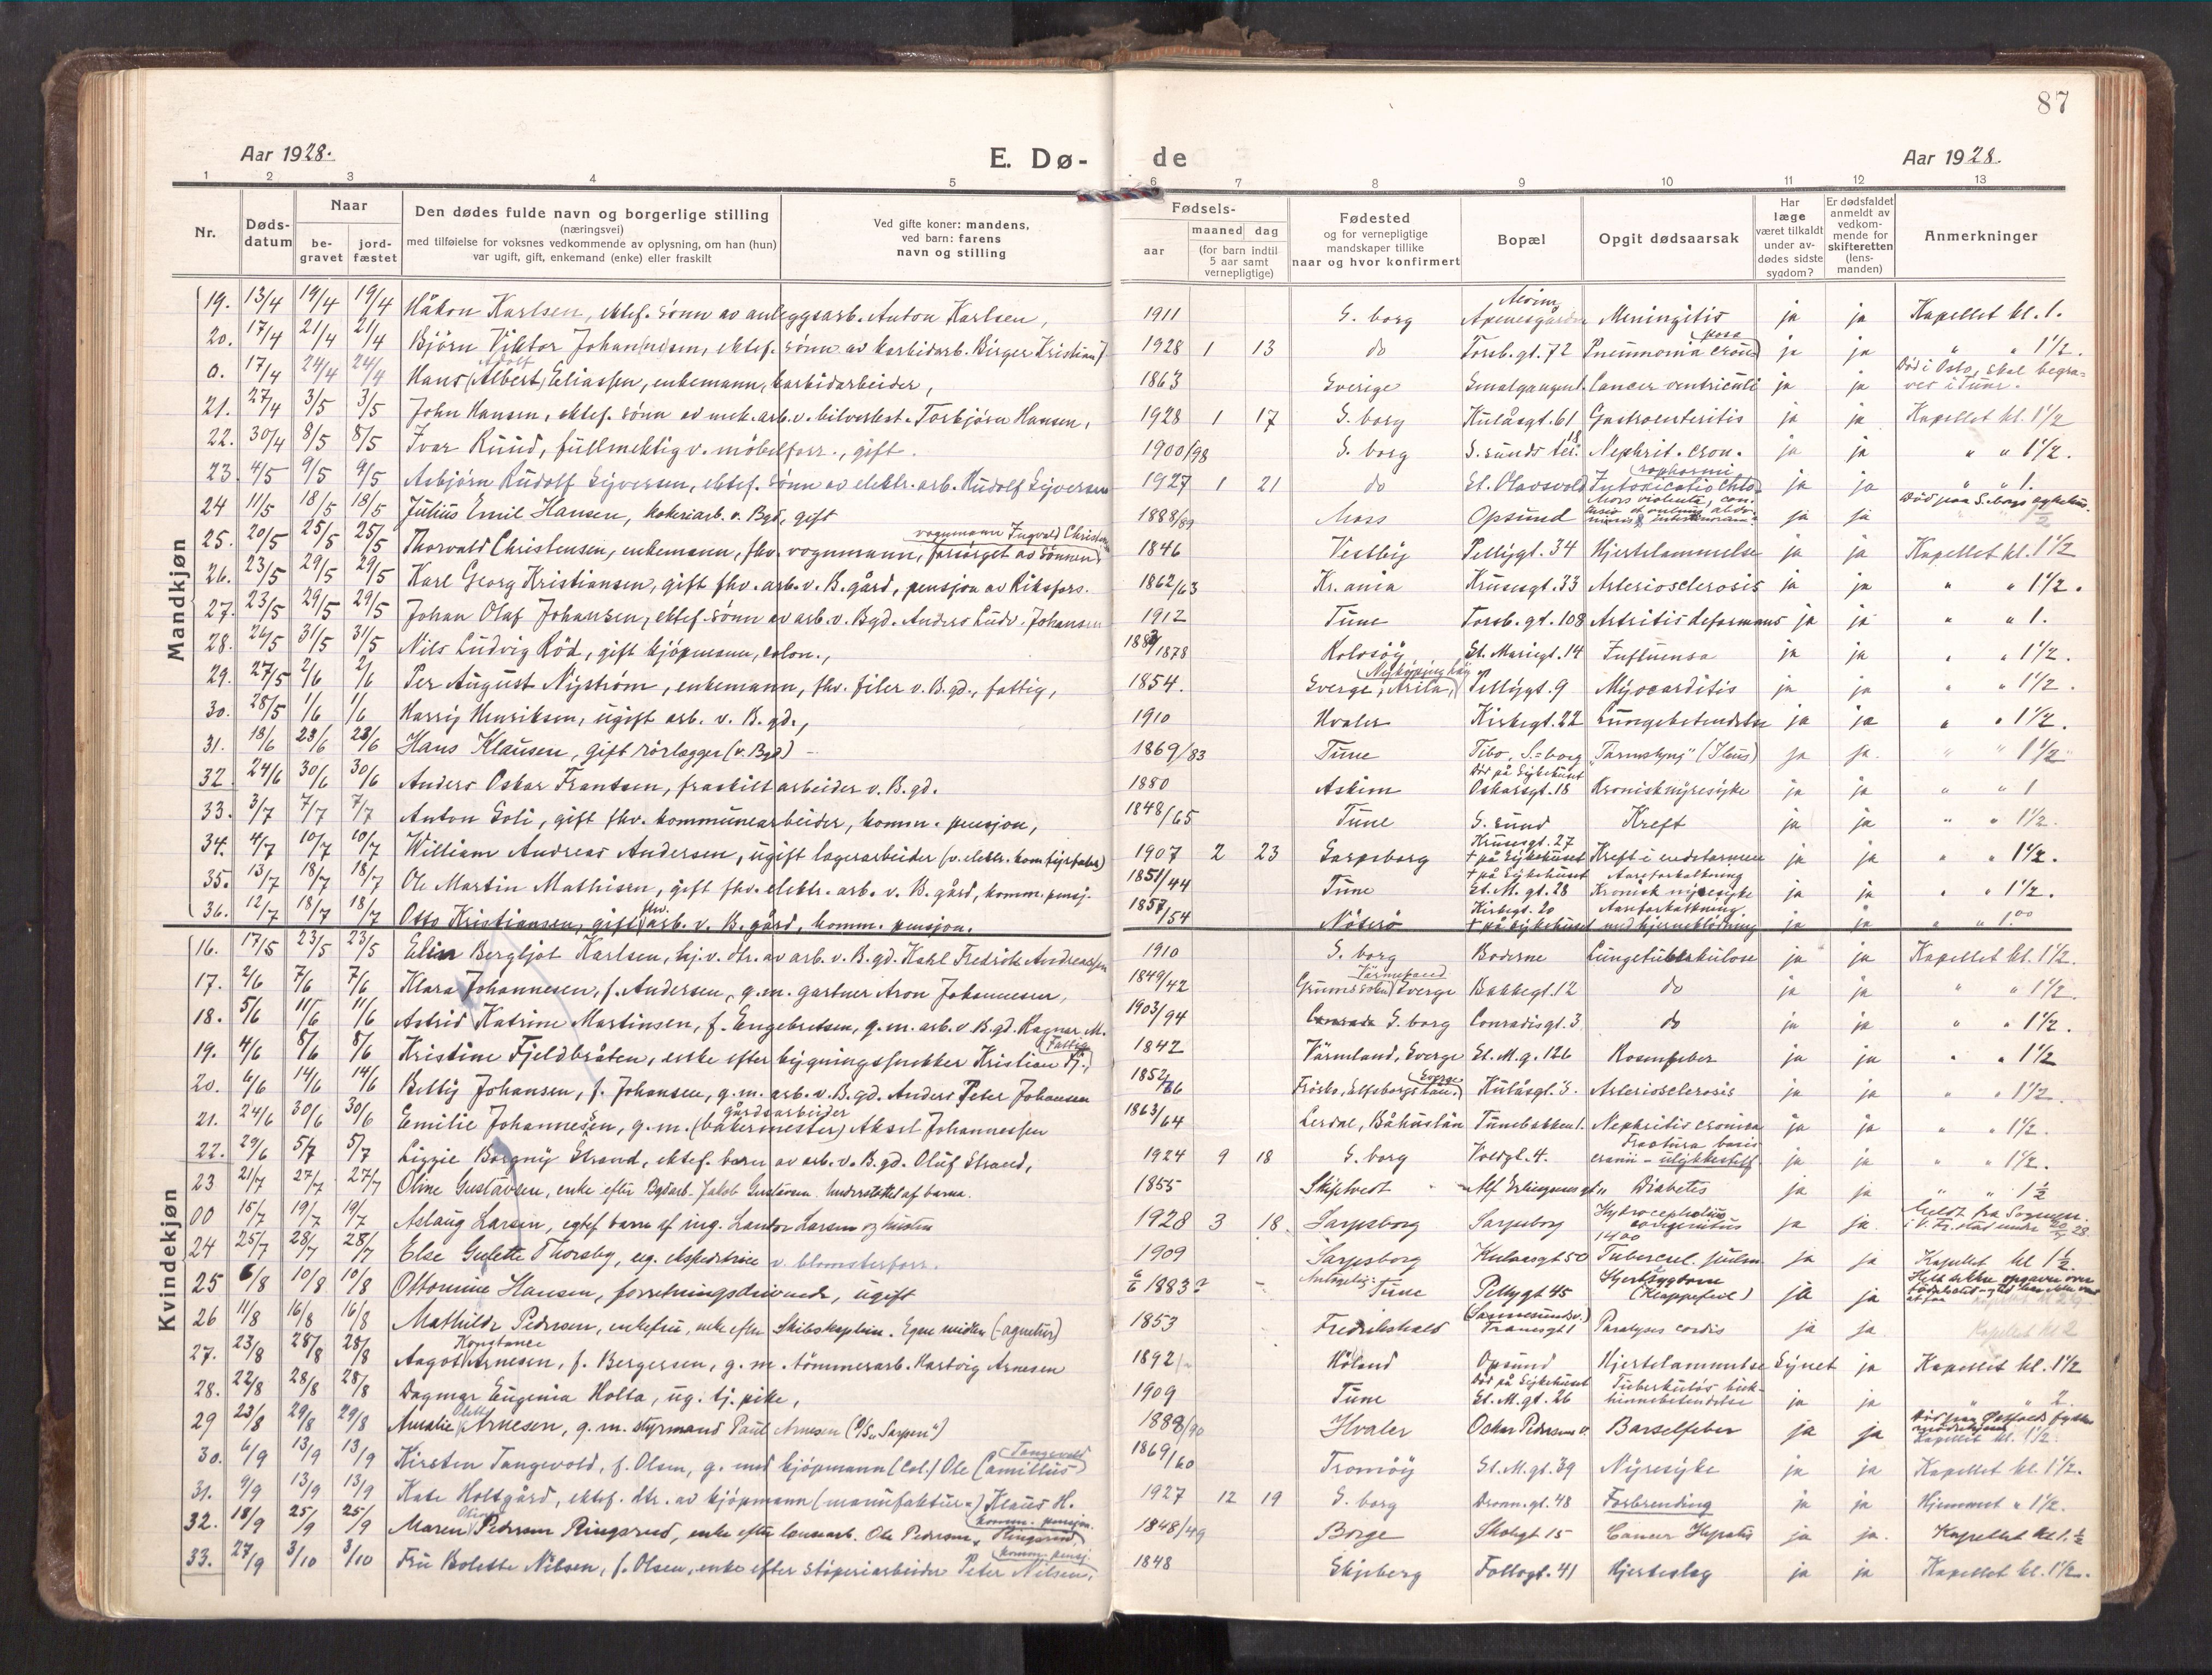 87
Aar 1928. E. Dø- de Aar 1928.
1 2 3 4 5 6 7 8 9 10 11 12 13
Nr. Døds-datum Naar be-gravet jord-fæstet Den dødes fulde navn og borgerlige stilling (næringsvei) med tilføielse for voksnes vedkommende av oplysning, om han (hun) var ugift, gift, enkemand (enke) eller fraskilt Ved gifte koner: mandens, ved barn: farens navn og stilling Fødsels- aar maaned dag (for barn indtil 5 aar samt vernepligtige) Fødested og for vernepligtige mandskaper tillike naar og hvor konfirmert Bopæl Opgit dødsaarsak Har læge været tilkaldt under av-dødes sidste sygdom? Er dødsfaldet anmeldt av vedkom-mende for skifteretten (lens-manden) Anmerkninger
Mandkjøn
19. 13/4 19/4 19/4 Håkon Karlsen, ektef. sønn av anleggsarb. Anton Karlsen, 1911 S. borg Meningitis ja ja Kapellet kl. 1.
20. 17/4 21/4 21/4 Bjørn Viktor Johan(ne)sen, ektef. sønn av karbidarb. Birger Kristian J 1928 1 13 do Torsb. gt. 72 Pneumonia ja ja " " 1½.
0. 17/4 24/4 24/4 Hans (Albert) Adolf Eliassen, enkemann, karbidarbeider, 1863 Sverige Cancer ventriculi ja ja Død i Oslo, skal begra-ves i Tune.
21. 27/4 3/5 3/5 John Hansen, ektef. sønn av mek. arb. v. bilverkst. Torbjørn Hansen, 1928 1 17 S. borg Kulåsgt. 61 Gastroenteritis ja ja Kapellet kl. 1½
22. 30/4 8/5 8/5 Ivar Ruud, fullmektig v. møbelforr., gift. 1900/98 S. borg S. sunds ter. 18 Nephrit. cron. ja ja " " 1½.
23 4/5 9/5 9/5 Asbjørn Rudolf Syversen, ektef. sønn av elektr. arb. Rudolf Syversen 1927 1 21 do St. Olavsvold Intoxicatio ja ja " " 1.
24 11/5 18/5 18/5 Julius Emil Hansen, kokeriarb. v. Bgd, gift 1888/89 Moss Opsund Mors violenta, ja ja Død paa S.borgs sykehus. 1/2
25. 20/5 25/5 25/5 Thorvald Christensen, enkemann, fhv. vognmann, forsørget av sønnen vognmann Ingvald Christensen 1846 Vestby Pellygt. 34 Hjertelammelse ja ja Kapellet kl. 1½
26. 23/5 29/5 29/5 Karl Georg Kristiansen, gift fhv. arb. v. B. gård, pensjon av Riksfors. 1862/63 Kr.ania Krusesgt. 33 Arteriosclerosis ja ja " " 1½.
27. 23/5 29/5 29/5 Johan Olaf Johansen, ektef. sønn av arb. v. Bgd. Anders Ludv. Johansen 1912 Tune Torsb. gt. 108 Artritis deformans ja ja " " 1.
28. 26/5 31/5 31/5 Nils Ludvig Röd, gift kjöpmann, colon., /1878 Kolvsöy St. Mariegt. 14 Influensa ja ja " " 1½.
29. 27/5 2/6 2/6 Per August Nyström, enkemann, fhv. filer v. B.gd., fattig, 1854. Sverge, Arila, Pellygt. 9 Myocarditis ja ja " " 1½.
30. 28/5 1/6 1/6 Harry Henriksen, ugift arb. v. B. gd., 1910 Hvaler Kirkegt. 22 Lungebetendelse ja ja " " 1½.
31. 18/6 23/6 23/6 Hans Klausen, gift rörlegger (v. Bgd) - 1869/83 Tune Tibo, S.=borg "Tarmslyng" (Ileus) ja ja. " " 1½
32. 24/6 30/6 30/6 Anders Oskar Frantsen, fraskilt arbeider v. B. gd. 1880 Askim Død på Sykehuset Oskarsgt. 18 Kronisk nyresyke ja ja " " 1
33. 3/7 7/7 7/7 Anton Soli, gift fhv. kommunearbeider, komm. pensjon, 1848/65 Tune S. sund Kreft ja ja " " 1½.
34. 4/7 10/7 10/7 William Andreas Andersen, ugift lagerarbeider (v. elektr. kom.fyrfabr.) 1907 2 23 Sarpsborg Krusesgt. 27 † på Sykehuset Kreft i endetarmen ja ja " " 1½.
35. 13/7 18/7 18/7 Ole Martin Mathisen, gift fhv. elektr. arb. v. B. gård, komm. pensj. 1851/44 Tune † på Sykehuset St. M. gt. 28 Aareforkalkning Kronisk nyresyke ja ja " " 1½.
36. 12/7 18/7 18/7 Otto Kristiansen, gift fhv. arb. v. B. gård, komm. pensjon. 1857/54 Nöterö Kirkegt. 20 † på Sykehuset Aareforkalkning med hjerneblödning ja ja " " 1.00
Kvindekjøn
16. 17/5 23/5 23/5 Elin Bergljot Karlsen, hj. v. dtr. av arb. v. B. gd. Karl Fredrik Andreassen 1910 S. borg Boderne Lungetuberkulose ja ja Kapellet kl. 1½.
17. 2/6 7/6 7/6 Klara Johannesen, f. Andersen, g. m. gartner Aron Johannesen, 1849/42 Grums sokn, Värmeland Sverge Bakkegt. 12 do ja ja " " 1½.
18. 5/6 11/6 11/6 Astrid Katrine Martinsen, f. Engebretsen, g. m. arb. v. B. gd. Ragnar M. 1903/94 S. borg Conradisgt. 3 do ja ja " " 1½.
19. 4/6 8/6 8/6 Kristine Fjeldbråten, enke efter bygningssnekker Kristian Fj. Fattig 1842 Värmland, Sverge St. M. g. 126 Rosenfeber ja ja " " 1½
20. 6/6 14/6 14/6 Betty Johansen, f. Johansen, g. m. arb. v. B. gd. Anders Peter Johansen 1852/ Elfsborgs län. Sverge Kulåsgt. 3. Arteriosclerosis ja ja " " 1½.
21. 24/6 30/6 30/6 Emilie Johannesen, g. m. (bakermester) gårdsarbeider Aksel Johannessen 1863/64 Lerdal, Båhuslän Tunebakken 1. Nephritis cronica ja ja " " 1½.
22. 29/6 5/7 5/7 Lizzie Borgny Strand, ektef. barn av arb. v. B. gd. Oluf Strand, 1924 9 18 S. borg Voldgt. 4. Fractura basis cranii - ulykkestilf. ja ja " " 1½.
23 21/7 27/7 27/7 Oline Gustavsen, enke efter Bgdarb. Jakob Gustavsen. Understøttet af barna. 1855 Skiptvedt Alf Erlingsensgt Diabetes ja ja " " 1½
00 15/7 19/7 19/7 Aslaug Larsen, egtef. barn af ing. Lantor Larsen og hustru 1928 3 18. Sarpsborg Sarpsborg Hydrocephalus congenitus ja ja. Meldt fra Sognepr. i V. Fr.stad under 20/7 28.
24 25/7 28/7 28/7 Else Gulette Thorsby, ug. ekspeditrice v. blomsterforr. 1909 Sarpsborg Kulaasgt 50 Tubercul. pulm. ja ja Kapellet kl 1½.
25 6/8 10/8 10/8 Ottomine Hansen, forretningsdrivende, ugift 6/6 1883? - Antagelig: Tune Pellygt 45 Hjertesygdom (Klappefeil) ja ja
26 11/8 16/8 16/8 Mathilde Pedersen, enkefru, enke efter Skibskaptein. Egne midler (-agentur) 1853 Fredrikshald (Sannesundsv.) Tranesgt 1 Paralysis cordis ja ja Kapellet kl 2
27. 23/8 28/8 28/8 Aagot Konstance Arnesen, f. Bergersen, g. m. tömmerarb. Hartvig Arnesen 1892/ Höland Opsund Hjertelammelse Synet ja Kapellet kl. 1½
28. 22/8 28/8 28/8 Dagmar Eugenia Holta, ug. tj. pike, 1909 Tune Död på Sykehuset St. M. gt. 26 Tuberkulös buk-hinnebetendelse ja ja " " 2.
29 23/8 29/8 29/8 Amalie Arnesen, g. m. styrmand Paul Arnesen (D/S „Sarpen") 1888/90 Hvaler Oskar Pedersens v. Barselfeber ja ja Kapellet kl. 1½.
30. 6/9 13/9 13/9 Kirsten Tangevold, f. Olsen, g. med kjöpmann (Col.) Ole Camillus Tangevold 1869/60 Tromöy St. M. gt. 39 Nyresyke ja ja Kapellet kl. 1½.
31. 9/9 13/9 13/9 Kate Holtgård, ektef. dtr. av kjöpmann (manufaktur-) Klaus H. 1927 12 19 S. borg Dronn. gt. 48 Forbrending ja ja Hjemmet " 1½.
32. 18/9 25/9 25/9 Maren Pedersen Ringsrud, enke efter løsarb. Ole Pedersen Ringsrud komm. pensjon. 1848/49 Borge Skolegt 15 Cancer Hepatis ja ja. Kapellet kl 1.½
33. 27/9 3/10 3/10 Fru Bolette Nilsen, f. Olsen, enke efter Støperiarbeider Peter Nilsen, komm. pensj. 1848 Skjeberg Follogt. 41 Hjerteslag ja ja Kapellet kl. 1½.